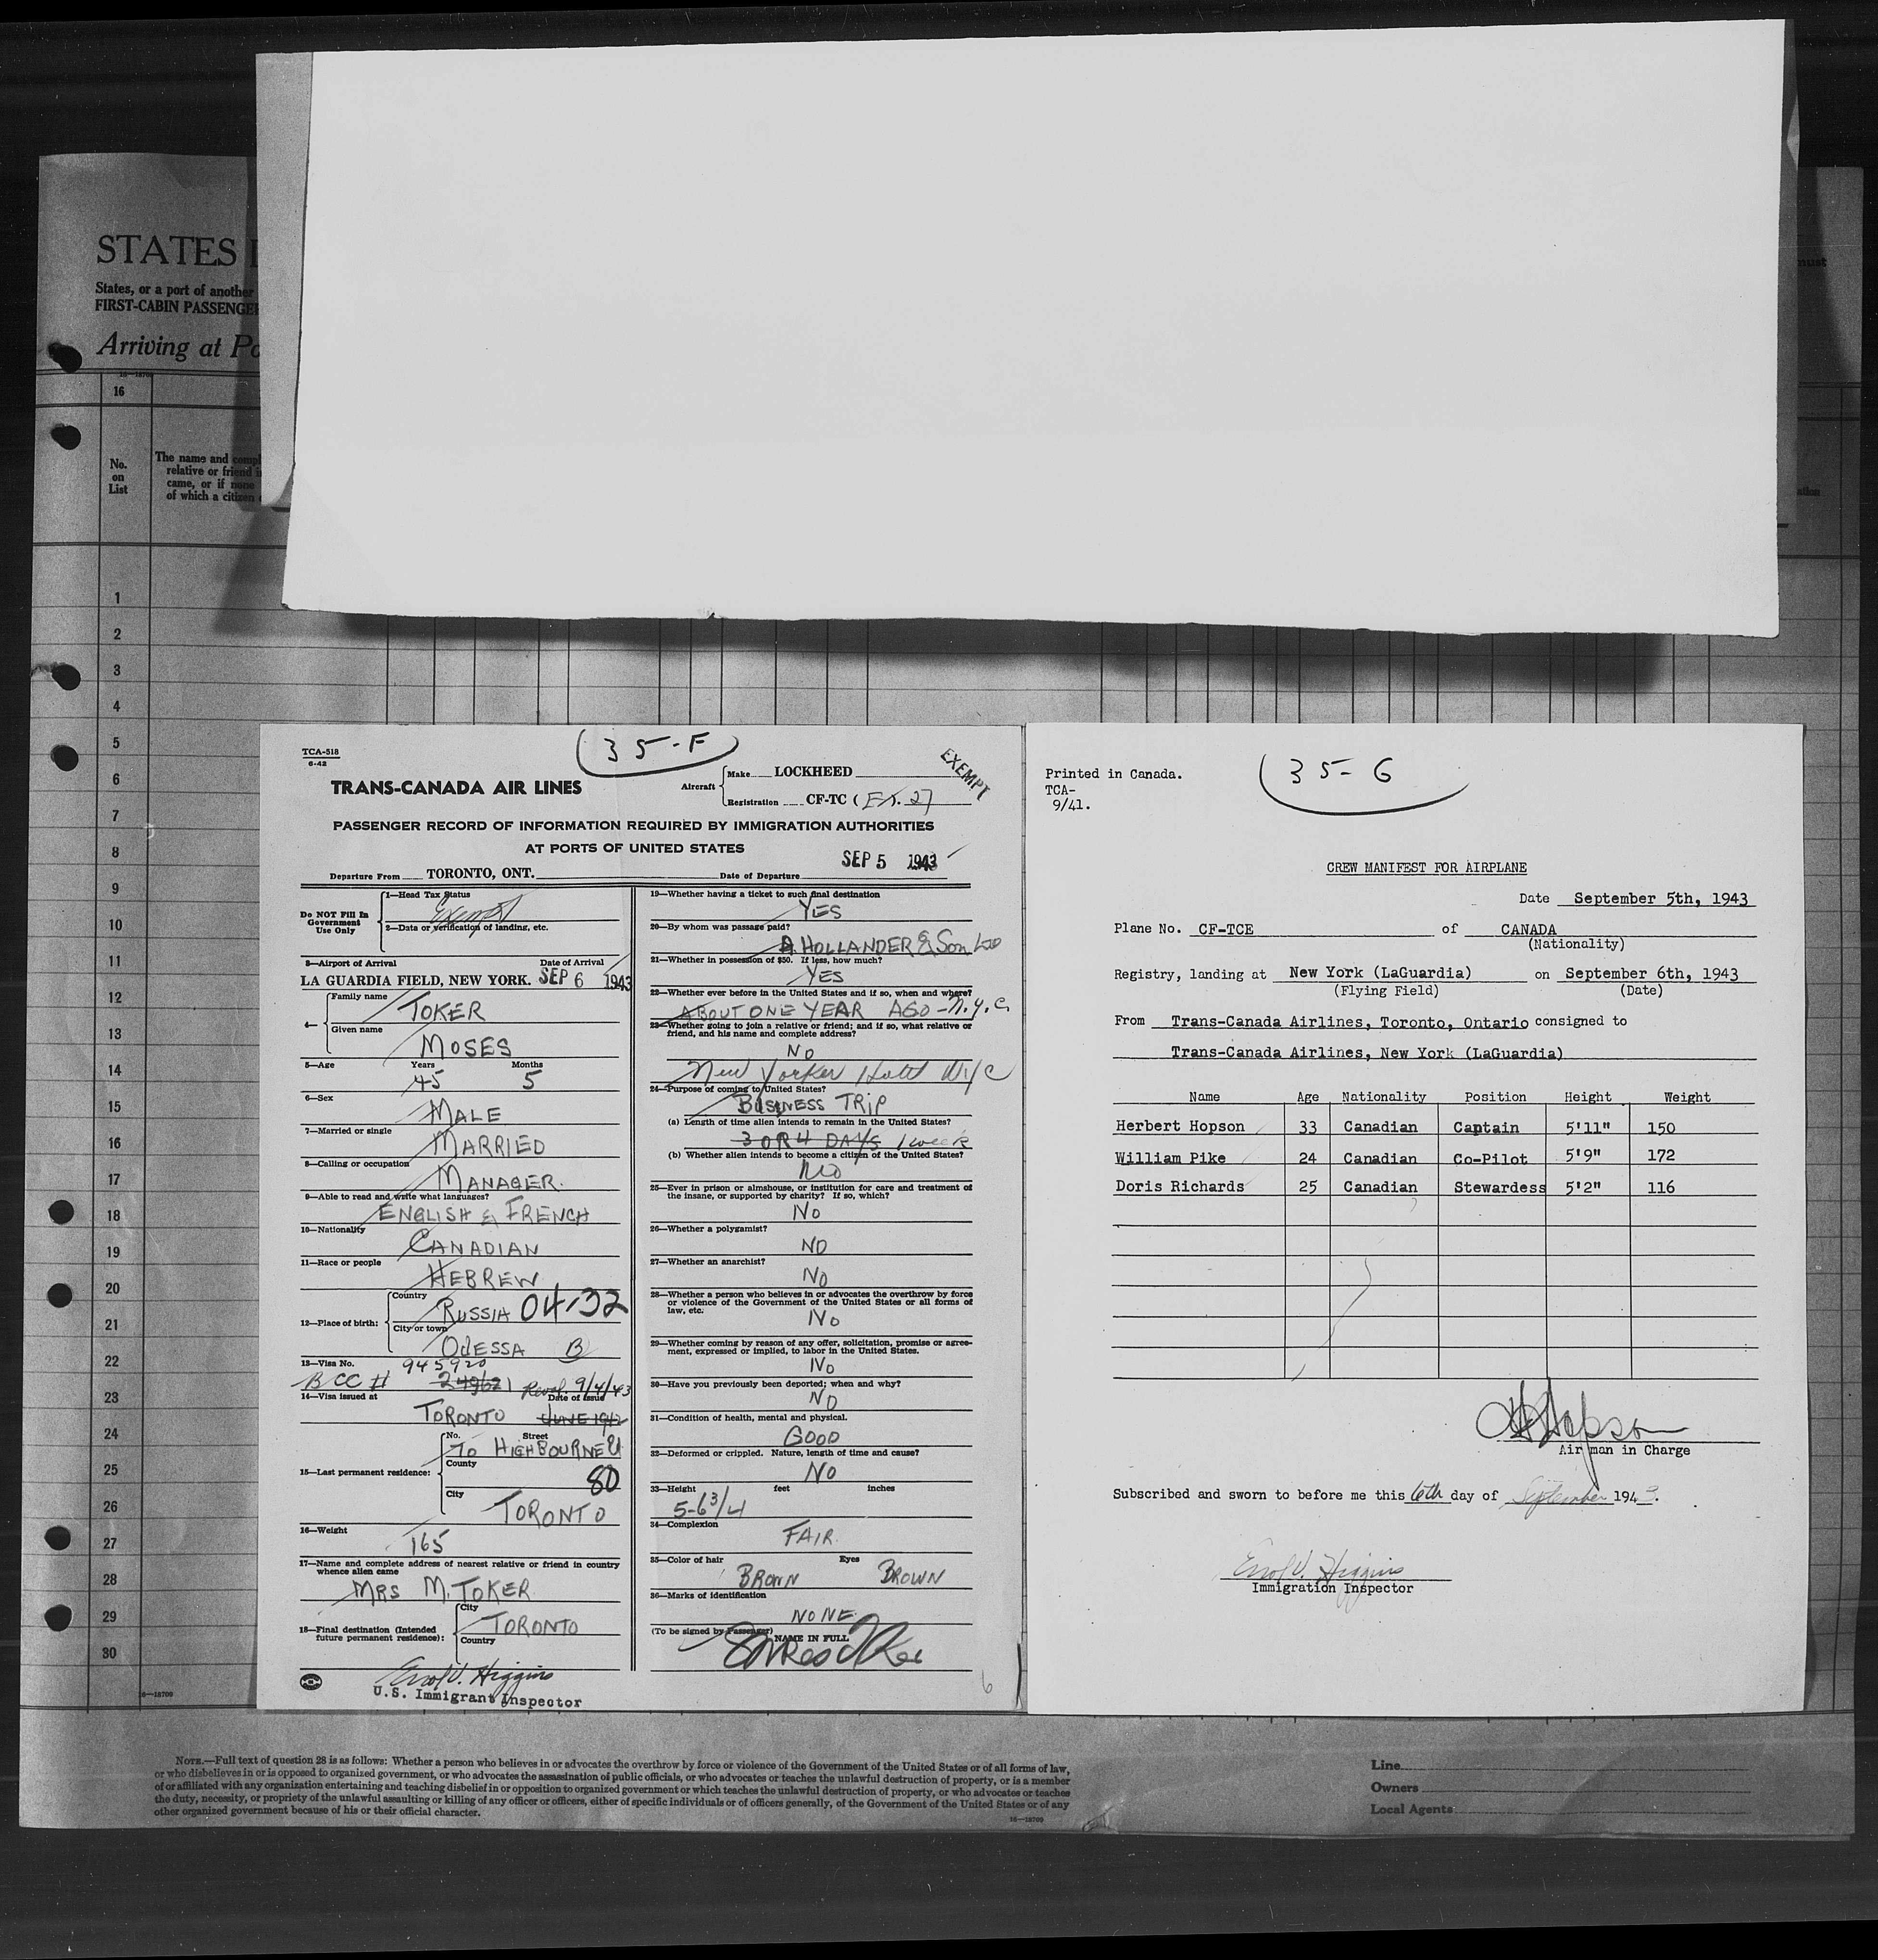 STATES
States, or a port of another
FIRST-CABIN PASSENGE
Arriving at Po
16
No.
on
List
The name and compl
relative or friend i
came, or if none
of which a citizen
1
2
3
4
5
6
7
8
9
10
11
12
13
14
15
16
17
18
19
20
21
22
23
24
25
26
27
28
29
30
16—18709
35-F
TCA-518
6-42
TRANS-CANADA AIR LINES
Aircraft
Make LOCKHEED
Registration CF-TC (
EXEMPT
PASSENGER RECORD OF INFORMATION REQUIRED BY IMMIGRATION AUTHORITIES
AT PORTS OF UNITED STATES
SEP 5 1943
Departure From TORONTO, ONT. Date of Departure
Do NOT Fill In
Government
Use Only
1—Head Tax Status
Exempt
2—Data or verification of landing, etc.
3—Airport of Arrival Date of Arrival
LA GUARDIA FIELD, NEW YORK. SEP 6 1943
4—
Family name
TOKER
Given name
MOSES
5—Age Years Months
45 5
6—Sex
MALE
7—Married or single
MARRIED
8—Calling or occupation
MANAGER.
9—Able to read and write what languages?
ENGLISH & FRENCH
10—Nationality
CANADIAN
11—Race or people
HEBREW
12—Place of birth:
Country
RUSSIA 04-32
City or town
ODESSA B
13—Visa No. 945920
BCC # 9/4/43
14—Visa issued at Date of Issue
TORONTO JUNE 1942
15—Last permanent residence:
No. Street
70 HIGHBOURNE Rd
County
80
City
TORONTO
16—Weight
165
17—Name and complete address of nearest relative or friend in country
whence alien came
MRS M. TOKER
18—Final destination (Intended
future permanent residence):
City
TORONTO
Country
Errol V. Higgins
U.S. Immigrant Inspector
19—Whether having a ticket to such final destination
YES
20—By whom was passage paid?
A HOLLANDER & SON LTD
21—Whether in possession of $50. If less, how much?
YES
22—Whether ever before in the United States and if so, when and where?
ABOUT ONE YEAR AGO - N.Y.C.
23—Whether going to join a relative or friend; and if so, what relative or
friend, and his name and complete address?
NO
New Yorker Hotel NYC
24—Purpose of coming to United States?
BUSINESS TRIP
(a) Length of time alien intends to remain in the United States?
3 OR 4 DAYS 1 week
(b) Whether alien intends to become a citizen of the United States?
NO
25—Ever in prison or almshouse, or institution for care and treatment of
the insane, or supported by charity? If so, which?
NO
26—Whether a polygamist?
NO
27—Whether an anarchist?
NO
28—Whether a person who believes in or advocates the overthrow by force
or violence of the Government of the United States or all forms of
law, etc.
NO
29—Whether coming by reason of any offer, solicitation, promise or agree-
ment, expressed or implied, to labor in the United States.
NO
30—Have you previously been deported; when and why?
NO
31—Condition of health, mental and physical.
GOOD
32—Deformed or crippled. Nature, length of time and cause?
NO
33—Height feet inches
5-6 3/4
34—Complexion
FAIR.
35—Color of hair Eyes
BROWN BROWN
36—Marks of identification
NONE
(To be signed by Passenger) NAME IN FULL
6
35-G
Printed in Canada.
TCA-
9/41.
CREW MANIFEST FOR AIRPLANE
Date September 5th, 1943
Plane No. CF-TCE of CANADA
(Nationality)
Registry, landing at New York (LaGuardia) on September 6th, 1943
(Flying Field) (Date)
From Trans-Canada Airlines, Toronto, Ontario consigned to
Trans-Canada Airlines, New York (LaGuardia)
Name Age Nationality Position Height Weight
Herbert Hopson 33 Canadian Captain 5'11" 150
William Pike 24 Canadian Co-Pilot 5'9" 172
Doris Richards 25 Canadian Stewardess 5'2" 116
Airman in Charge
Subscribed and sworn to before me this 6th day of September 1943.
Errol V. Higgins
Immigration Inspector
NOTE.—Full text of question 28 is as follows: Whether a person who believes in or advocates the overthrow by force or violence of the Government of the United States or of all forms of law,
or who disbelieves in or is opposed to organized government, or who advocates the assassination of public officials, or who advocates or teaches the unlawful destruction of property, or is a member
of or affiliated with any organization entertaining and teaching disbelief in or opposition to organized government or which teaches the unlawful destruction of property, or who advocates or teaches
the duty, necessity, or propriety of the unlawful assaulting or killing of any officer or officers, either of specific individuals or of officers generally, of the Government of the United States or of any
other organized government because of his or their official character.
16—18709
Line
Owners
Local Agents